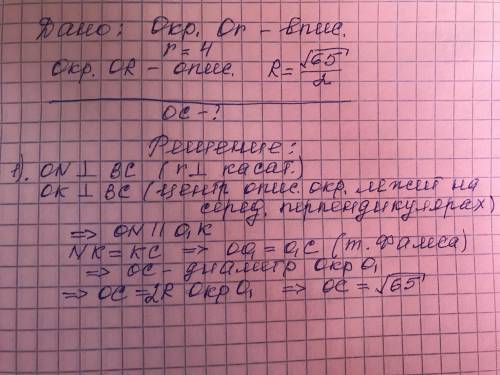 Дано: Окр. Or – впис.
r = 4
Окр. OR – опис. R = √65/2
OC - ?
Решение:
1). ON ⊥ BC (r ⊥ касат.)
OK ⊥ BC (центр опис. окр. лежит на
серед. перпендикулярах)
⇒ ON || O₁K
NK = KC ⇒ OO₁ = O₁C (т. Фалеса)
⇒ OC – диаметр Окр O₁
⇒ OC = 2R Окр O₁ ⇒ OC = √65